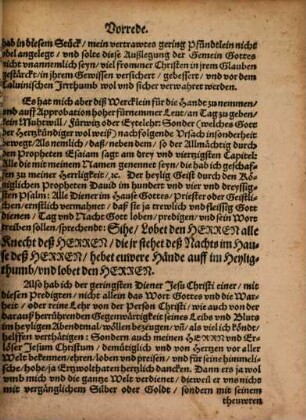 Vorrede.
hab in diesem Stück / mein vertrawtes gering Pfündtlein nicht
übel angelegt / vnd solte diese Außlegung der Gemein Gottes
nicht vnannemlich seyn / viel frommer Christen in jrem Glauben
gestärckt / in jhrem Gewissen versichert / gebessert / vnd vor dem
Caluinischen Jrrthumb wol vnd sicher verwahret werden.
Es hat mich aber diß Wercklein für die Hande zu nemmen /
vnd auff Approbation hoher fürnemer Leut / an Tag zu geben /
kein Muhtwill / Fürwitz oder Eytelehr: Sonder (welches Gott
der Hertzkündiger wol weiß) nachfolgende Vrsach insonderheit
bewegt. Als nemlich / daß / neben dem / so der Allmächtig durch
den Propheten Esaiam sagt am drey vnd viertzigsten Capitel:
Alle die mit meinem Namen genennet seyn / die hab ich geschaf-
fen zu meiner Herrligkeit / ꝛc. Der heylig Geist durch den Kö-
niglichen Propheten Dauid im hundert vnd vier vnd dreyssig-
sten Psalm: Alle Diener im Hause Gottes / Priester oder Geistli-
chen / ernstlich vermahnet / daß sie ja trewlich vnd fleissig Gott
dienen / Tag vnd Nacht Gott loben / predigen / vnd sein Wort
treiben sollen / sprechendt: Sihe / Lobet den HERREN alle
Knecht deß HERREN / die jr stehet deß Nachts im Hau-
se deß HERREN / hebet euwere Hände auff im Heylig-
thumb / vnd lobet den HERREN.
Also hab ich der geringsten Diener Jesu Christi einer / mit
diesen Predigten / nicht allein das Wort Gottes vnd die War-
heit / oder reine Lehr von der Person Christi / wie auch von der
darauß herrührenden Gegenwärtigkeit seines Leibs vnd Bluts
im heyligen Abendtmal / wöllen bezeugen / vñ / als viel ich köndt /
helffen verthätigen: Sondern auch meinen HERRN vnd Er-
löser Jesum Christum / demütiglich / vnd von Hertzen vor aller
Welt bekennen / ehren / loben vnd preisen / vnd für seine himmeli-
sche / hohe / ja Ertzwolthaten hertzlich dancken. Dann ers ja wol
vmb mich vnd die gantze Welt verdienet / dieweil er vns nicht
mit vergänglichem Silber oder Goldt / sondern mit seinem
theuwren